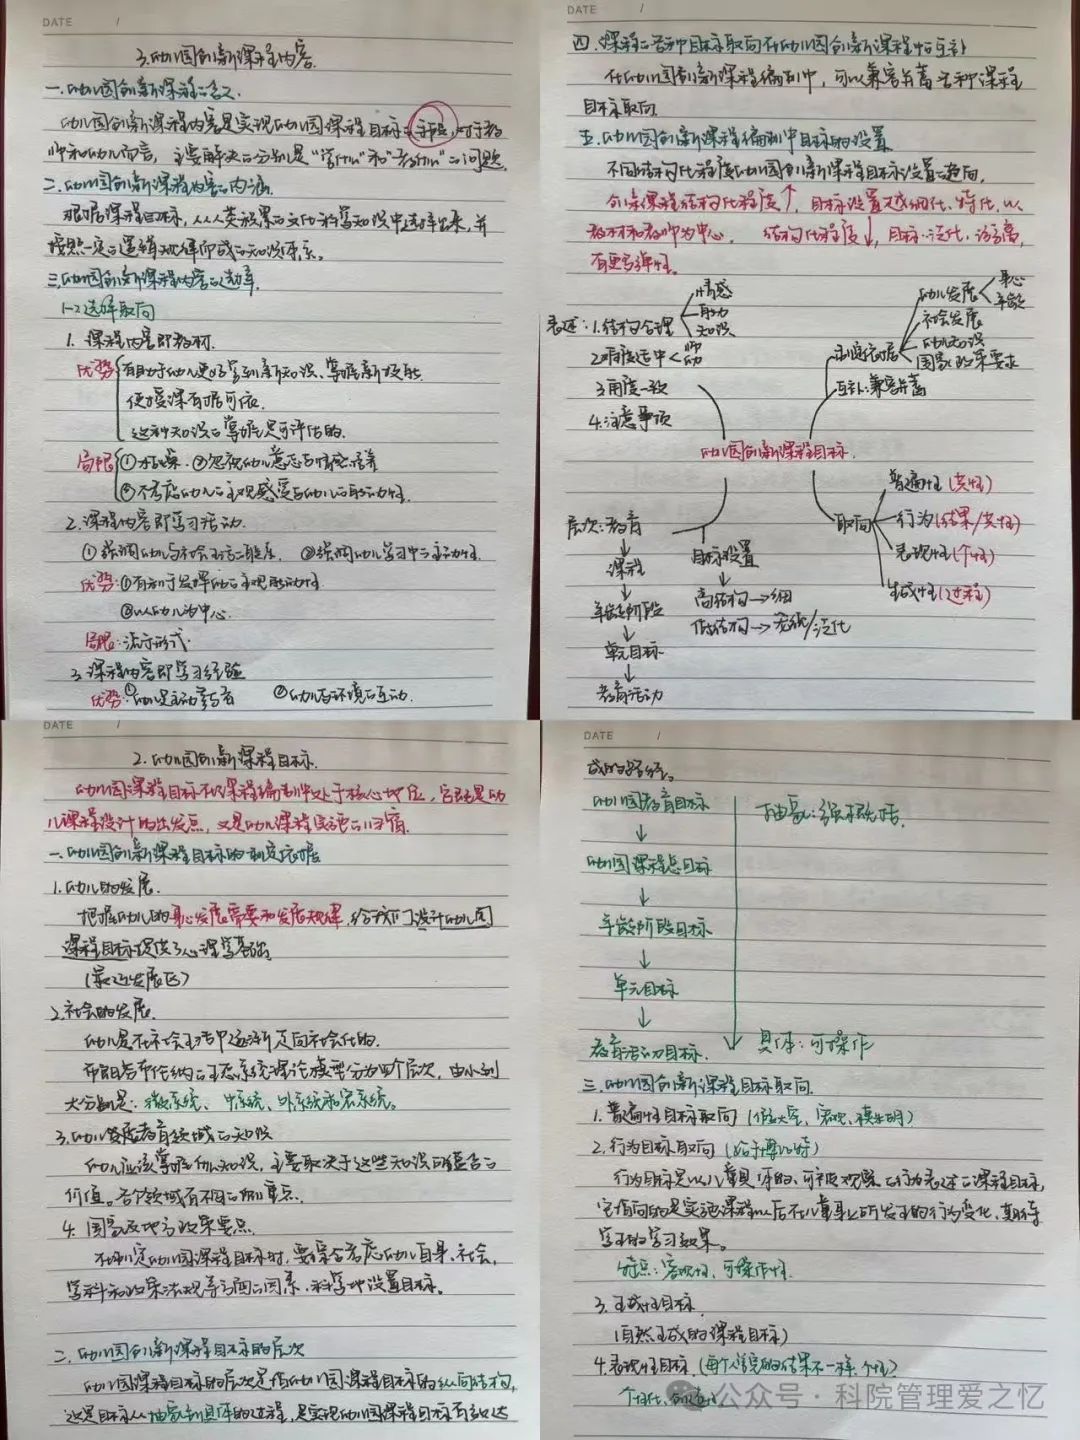 DATE /
3.幼儿园创新课程内容.
一.幼儿园创新课程的含义
幼儿园创新课程内容是实现幼儿园课程目标的手段,对于教
师和幼儿而言,主要解决的分别是“学什么”和“教什么”的问题.
二.幼儿园创新课程内容的内涵
根据课程目标,从人类积累的文化科学知识中选择出来,并
按照一定的逻辑规律而成的知识体系。
三.幼儿园创新课程内容的选择.
1-2选择取向
1. 课程内容即教材.
优势 有助于幼儿更好学到新知识、掌握新技能.
使授课有据可依.
这种知识的掌握是可评估的.
局限 ① ②忽视幼儿意志与情感培养
③不考虑幼儿的主观感受与幼儿的能动性.
2.课程内容即学习活动.
①强调幼儿与社会生活的联系 ②强调幼儿学习中的主动性.
优势:①有利于发挥幼儿主观能动性
②以幼儿为中心.
局限:流于形式.
3.课程内容即学习经验
优势:①幼儿是主动学习者 ②幼儿与环境的互动.
DATE /
四.课程的各种目标取向在幼儿园创新课程中的互补
在幼儿园创新课程编制中,可以兼容并蓄各种课程
目标取向.
五.幼儿园创新课程编制中目标的设置
不同结构化程度幼儿园创新课程目标设置的趋向,
创新课程结构化程度↑,目标设置越细化、特化,以
教材和教师为中心. 结构化程度↓,目标:泛化、
有更多弹性。
表述:1.结构合理
情感
能力
知识
2.难度适中
师
幼
3.角度一致
4.注意事项
幼儿园创新课程目标.
制定依据
幼儿发展
身心
年龄
社会发展
幼儿知识
国家政策要求
互补:兼容并蓄
取向
普遍性(共性)
行为(结果/共性)
表现性(个性)
生成性(过程)
层次:教育
↓
课程
↓
年龄阶段
↓
单元目标
↓
教育活动
目标设置
↓
高结构→细
低结构→笼统/泛化
DATE /
2.幼儿园创新课程目标.
幼儿园课程目标在课程编制中处于核心地位,它既是幼
儿课程设计的出发点,又是幼儿课程实施的归宿.
一.幼儿园创新课程目标的制定依据
1.幼儿的发展.
根据幼儿的身心发展需要和发展规律,给我们设计幼儿园
课程目标提供了心理学基础.
(最近发展区)
2.社会的发展.
幼儿是在社会生活中逐渐走向社会化的.
布朗芬布伦纳的生态系统理论模型分为四个层次,由小到
大分别是:微系统、中系统、外系统和宏系统。
3.幼儿教育领域的知识
幼儿应该掌握什么知识,主要取决于这些知识所蕴含的
价值。各个领域有不同的侧重点.
4. 国家及地方政策要点.
在制定幼儿园课程目标时,要综合考虑幼儿自身、社会、
学科和政策法规等方面的因素,科学地设置目标。
二.幼儿园创新课程目标的层次
幼儿园课程目标的层次是指幼儿园课程目标的纵向结构,
这是目标从抽象到具体的过程,是实现幼儿园课程目标有效达
DATE /
成的路径。
幼儿园教育目标
↓
幼儿园课程总目标
↓
年龄阶段目标
↓
单元目标
↓
教育活动目标.
抽象:强概括.
具体:可操作
三.幼儿园创新课程目标取向.
1.普遍性目标取向(假大空、宏观、模糊)
2.行为目标取向(始于博比特)
行为目标是以儿童具体的、可被观察的行为表述的课程目标,
它指向的是实施课程以后在儿童身上所发生的行为变化、期待
学生的学习效果。
特点:客观性、可操作性.
3.生成性目标
(自然生成的课程目标)
4.表现性目标(每个人追求的结果不一样,个性)
个性化、创造性
公众号·科院管理爱之忆